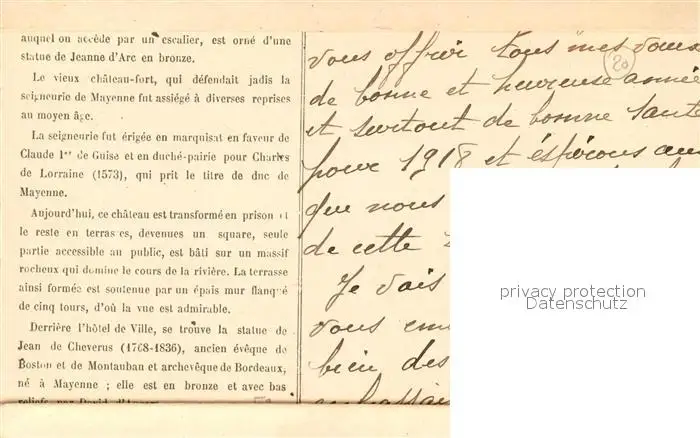 auquel on accède par un escalier, est orné d'une
statue de Jeanne d'Arc en bronze.
Le vieux château-fort, qui défendait jadis la
seigneurie de Mayenne fut assiégé à diverses reprises
au moyen âge.
La seigneurie fut érigée en marquisat en faveur de
Claude Ier de Guise et en duché-pairie pour Charles
de Lorraine (1573), qui prit le titre de duc de
Mayenne.
Aujourd'hui, ce château est transformé en prison et
le reste en terrasses, devenues un square, seule
partie accessible au public, est bâti sur un massif
rocheux qui domine le cours de la rivière. La terrasse
ainsi formée est soutenue par un épais mur flanqué
de cinq tours, d'où la vue est admirable.
Derrière l'hôtel de Ville, se trouve la statue de
Jean de Cheverus (1768-1836), ancien évêque de
Boston et de Montauban et archevêque de Bordeaux,
né à Mayenne ; elle est en bronze et avec bas
reliefs par David d'Angers
vous offrir tous mes vœux
20
de bonne et heureuse année
et surtout de bonne santé
pour 1918 et éspérons
que nous
de cette
Je vais
vous
bien des
privacy protection
Datenschutz